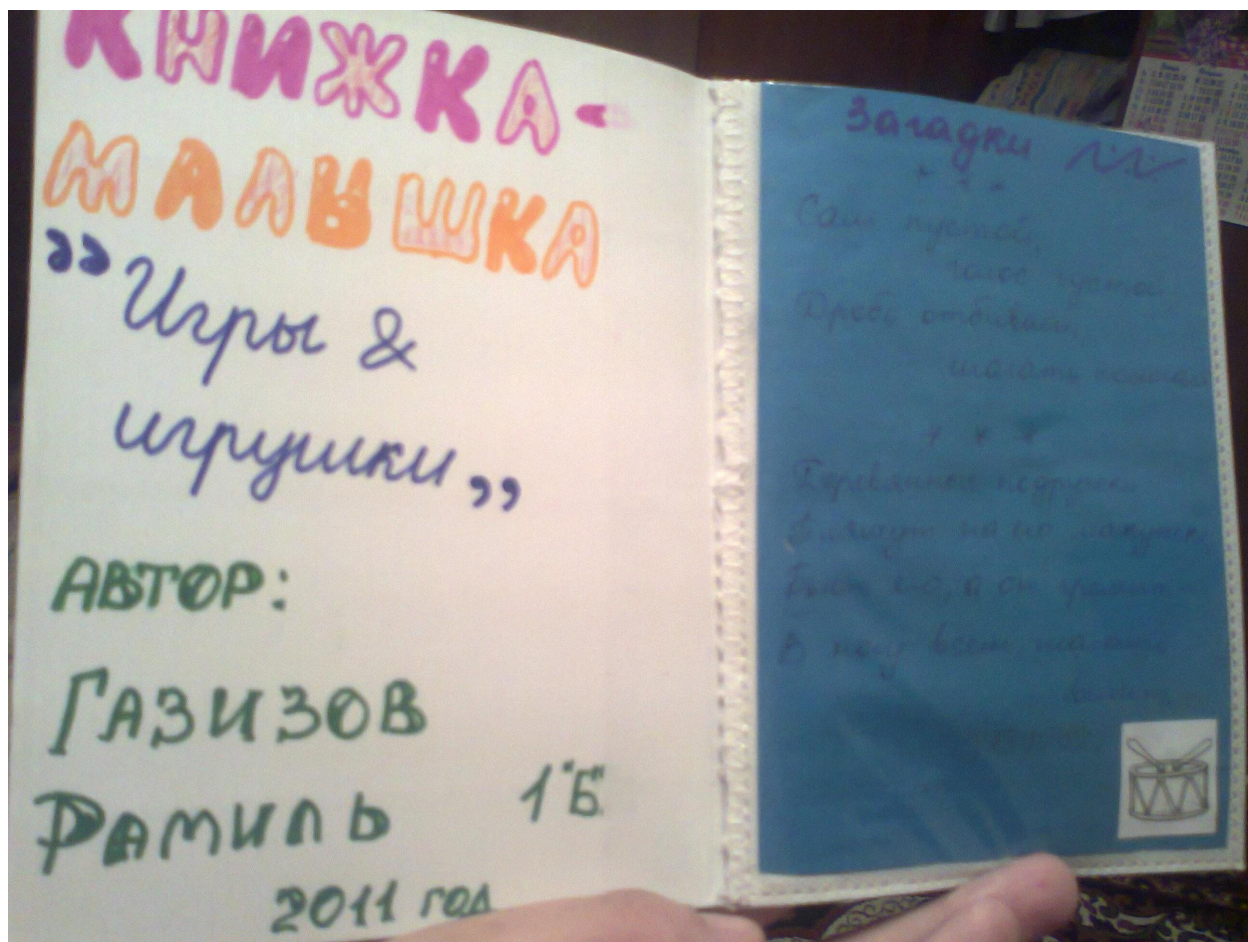 КНИЖКА-
МАЛЫШКА
"Игры &
игрушки"
АВТОР:
ГАЗИЗОВ
РАМИЛЬ
1 "Б"
2011 год
Загадки
* * *
Сам пустой,
голос густой
Дробь отбивает,
шагать
* * *
Деревянные подружки
Пляшут на
Бьют его, а он гремит
В ногу всем шагать
велит